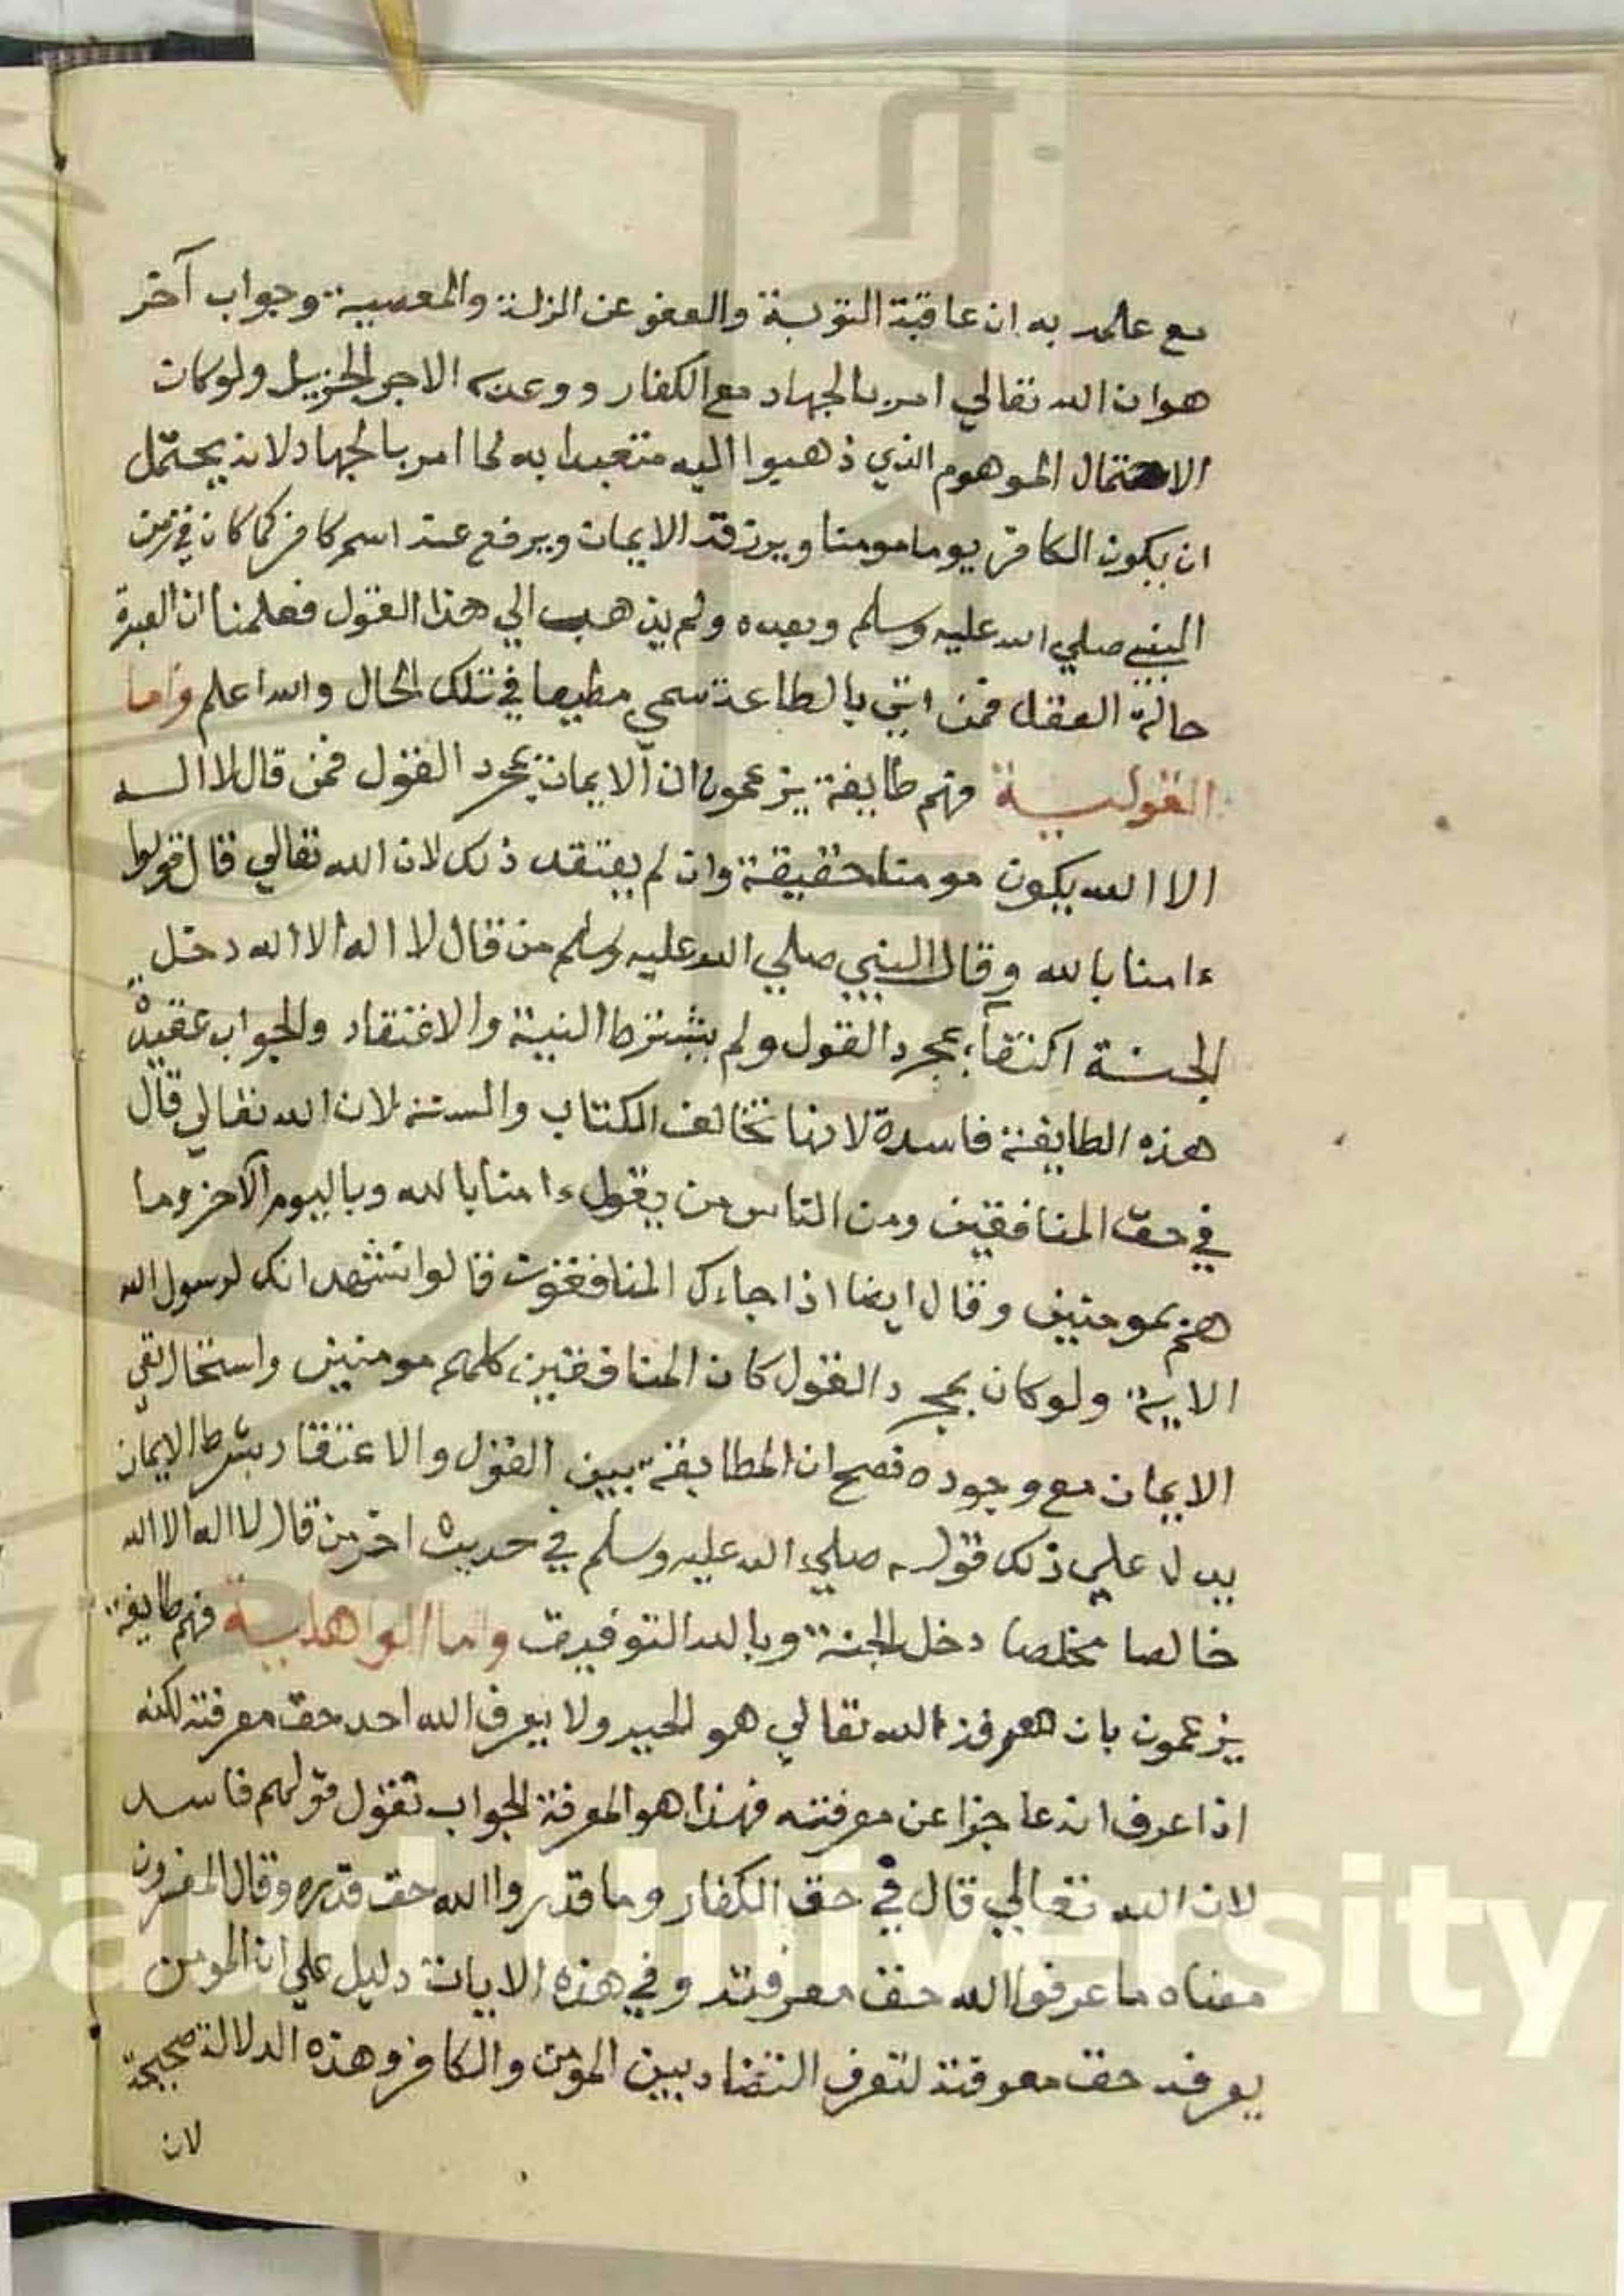 مع علمه به ان عاقبة التوبة والعفو عن الزلة والمعصية وجواب آخر
هو ان الله تعالي امر بالجهاد مع الكفار ووعد الاجر الجزيل ولو كان
الاحتمال الموهوم الذي ذهبوا اليه متعبدا به لما امر بالجهاد لانه يحتمل
ان يكون الكافر يوما مومنا ويرزقه الايمان ويرفع عنه اسم كافر كما كان في زمن
النبي صلي الله عليه وسلم وبعده ولم يذهب الي هذا القول فعلمنا ان العبرة
حالة العقل فمن اتي بالطاعة سمي مطيعا في تلك الحال والله اعلم واما
القولية فهم طايفة يزعمون ان الايمان بمجرد القول فمن قال لا اله
الا الله يكون مومنا حقيقة وان لم يعتقد ذلك لان الله تعالي قال قولوا
ءامنا بالله وقال النبي صلي الله عليه وسلم من قال لا اله الا الله دخل
الجنة اكتفآء بمجرد القول ولم يشترط النية والاعتقاد والجواب عقيدة
هذه الطايفة فاسدة لانها تخالف الكتاب والسنة لان الله تعالي قال
في حق المنافقين ومن الناس من يقول ءامنا بالله وباليوم الآخر وما
هم بمومنين وقال ايضا اذا جاءك المنافقون قالوا نشهد انك لرسول الله
الاية ولو كان بمجرد القول كان المنافقين كلهم مومنين واستحال نفي
الايمان مع وجوده فصح ان المطابقة بين القول والاعتقاد بشرط الايمان
يدل علي ذلك قوله صلي الله عليه وسلم في حديث اخر من قال لا اله الا الله
خالصا مخلصا دخل الجنة وبالله التوفيق واما الواهلية فهم طايفة
يزعمون بان معرفة الله تعالي هو الحيد ولا يعرف الله احد حق معرفته لكنه
اذا عرف انه عاجزا عن معرفته فهذا هو المعرفة الجواب نقول قولهم فاسد
لان الله تعالي قال في حق الكفار وما قدروا الله حق قدره وقال المفسرون
معناه ما عرفوا الله حق معرفته وفي هذه الايات دليل علي ان المومن
يعرفه حق معرفته لتعرف التضاد بين المومن والكافر وهذه الدلالة صحيحة
لان
Saud University